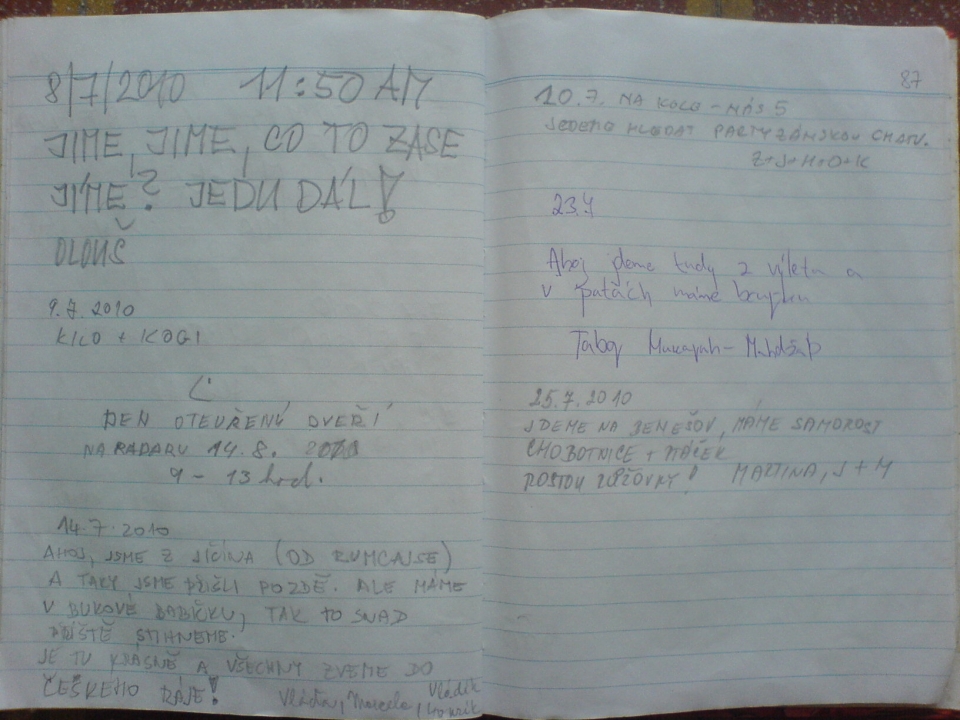 8/7/2010 11:50 AM
JIME, JIME, CO TO ZASE
JÍME? JEDU DÁL!
OLOUŠ
9.7.2010
KILO + KOGI
DEN OTEVŘENÝ DVEŘÍ
NA RADARU 14.8. 2010
9 - 13 hod.
14.7.2010
AHOJ, JSME Z JIČÍNA (OD RUMCAJSE)
A TAKY JSME PŘIŠLI POZDĚ. ALE MÁME
V BUKOVÉ BABIČKU, TAK TO SNAD
PŘÍŠTĚ STIHNEME.
JE TU KRÁSNĚ A VŠECHNY ZVEME DO
ČESKÉHO RÁJE!
Vláďa, Marcela, Vládík
87
10.7. NA KOLO - NÁS 5
JEDEME HLEDAT PARTYZÁNSKOU CHATU.
Z+J+H+O+K
23.7
Ahoj jdeme tudy z výletu a
v patách máme bouřku
Tábor
25.7.2010
JDEME NA BENEŠOV, MÁME SAMOROST
CHOBOTNICE + PTÁČEK
ROSTOU RŮŽOVKY! MARTINA, J + M